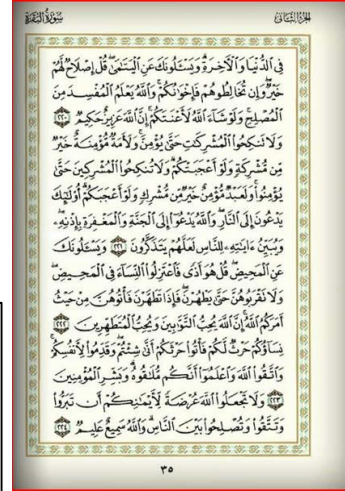 الجزء الثاني
سورة البقرة
فِي الدُّنْيَا وَالْآخِرَةِ وَيَسْـَٔلُونَكَ عَنِ الْيَتَـٰمَىٰ قُلْ إِصْلَاحٌ لَّهُمْ
خَيْرٌ وَإِن تُخَالِطُوهُمْ فَإِخْوَٰنُكُمْ وَاللَّهُ يَعْلَمُ الْمُفْسِدَ مِنَ
الْمُصْلِحِ وَلَوْ شَاءَ اللَّهُ لَأَعْنَتَكُمْ إِنَّ اللَّهَ عَزِيزٌ حَكِيمٌ ٢٢٠
وَلَا تَنكِحُوا الْمُشْرِكَـٰتِ حَتَّىٰ يُؤْمِنَّ وَلَأَمَةٌ مُّؤْمِنَةٌ خَيْرٌ
مِّن مُّشْرِكَةٍ وَلَوْ أَعْجَبَتْكُمْ وَلَا تُنكِحُوا الْمُشْرِكِينَ حَتَّىٰ
يُؤْمِنُوا وَلَعَبْدٌ مُّؤْمِنٌ خَيْرٌ مِّن مُّشْرِكٍ وَلَوْ أَعْجَبَكُمْ أُولَـٰئِكَ
يَدْعُونَ إِلَى النَّارِ وَاللَّهُ يَدْعُوا إِلَى الْجَنَّةِ وَالْمَغْفِرَةِ بِإِذْنِهِ
وَيُبَيِّنُ ءَايَـٰتِهِ لِلنَّاسِ لَعَلَّهُمْ يَتَذَكَّرُونَ ٢٢١ وَيَسْـَٔلُونَكَ
عَنِ الْمَحِيضِ قُلْ هُوَ أَذًى فَاعْتَزِلُوا النِّسَاءَ فِي الْمَحِيضِ
وَلَا تَقْرَبُوهُنَّ حَتَّىٰ يَطْهُرْنَ فَإِذَا تَطَهَّرْنَ فَأْتُوهُنَّ مِنْ حَيْثُ
أَمَرَكُمُ اللَّهُ إِنَّ اللَّهَ يُحِبُّ التَّوَّٰبِينَ وَيُحِبُّ الْمُتَطَهِّرِينَ ٢٢٢
نِسَاؤُكُمْ حَرْثٌ لَّكُمْ فَأْتُوا حَرْثَكُمْ أَنَّىٰ شِئْتُمْ وَقَدِّمُوا لِأَنفُسِكُمْ
وَاتَّقُوا اللَّهَ وَاعْلَمُوا أَنَّكُم مُّلَـٰقُوهُ وَبَشِّرِ الْمُؤْمِنِينَ
٢٢٣ وَلَا تَجْعَلُوا اللَّهَ عُرْضَةً لِّأَيْمَـٰنِكُمْ أَن تَبَرُّوا
وَتَتَّقُوا وَتُصْلِحُوا بَيْنَ النَّاسِ وَاللَّهُ سَمِيعٌ عَلِيمٌ ٢٢٤
٣٥